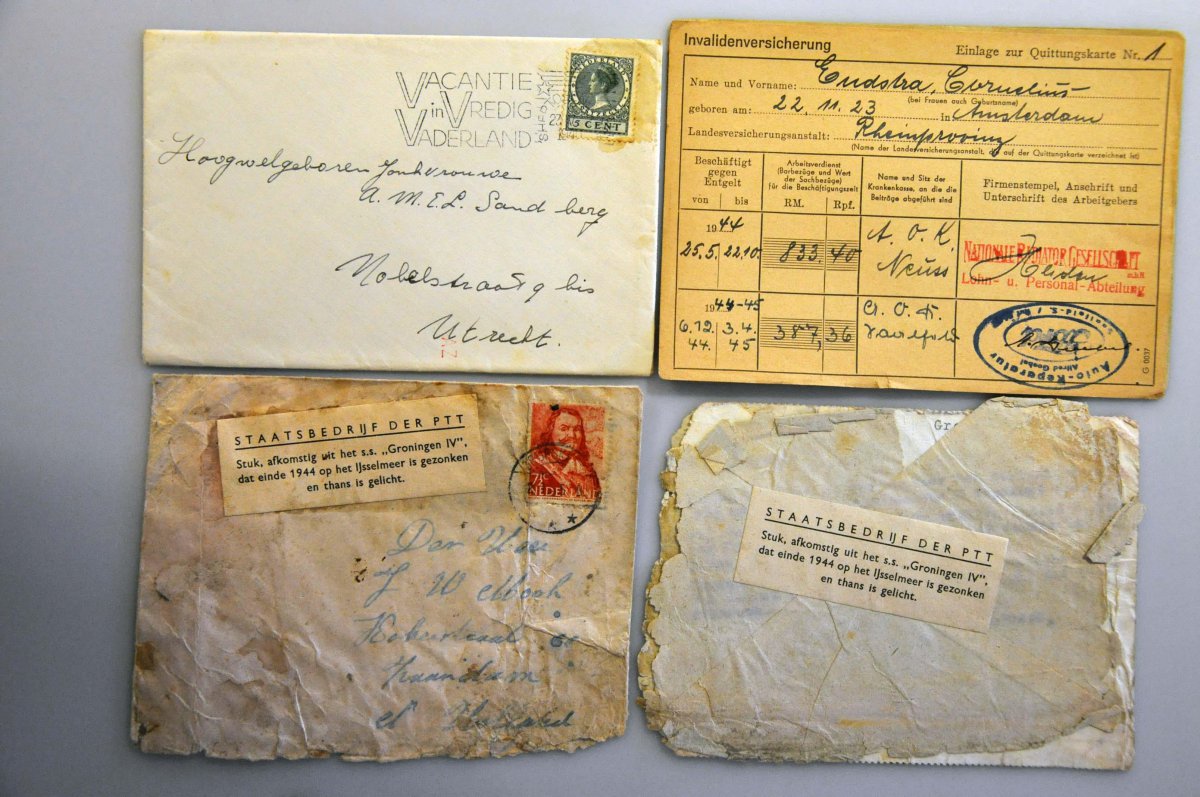 VACANTIE
in VREDIG
VADERLAND
NEDERLAND
5 CENT
Hoogwelgeboren Jonkvrouwe
A.M.E.L. Sandberg
Nobelstraat 9 bis
Utrecht.
Invalidenversicherung
Einlage zur Quittungskarte Nr. 1
Name und Vorname: Endstra, Cornelius
(bei Frauen auch Geburtsname)
geboren am: 22.11.23 in Amsterdam
Landesversicherungsanstalt: Rheinprovinz
(Name der Landesversicherungsanstalt, die auf der Quittungskarte verzeichnet ist)
Beschäftigt gegen Entgelt
von bis
Arbeitsverdienst
(Barbezüge und Wert
der Sachbezüge)
für die Beschäftigungszeit
RM. Rpf.
Name und Sitz der
Krankenkasse, an die die
Beiträge abgeführt sind
Firmenstempel, Anschrift und
Unterschrift des Arbeitgebers
1944
25.5. 22.10. 833 40
A.O.K.
Neuss
NATIONALE RADIATOR GESELLSCHAFT
m.b.H.
Lohn- u. Personal-Abteilung
1944-45
6.12. 3.4.
44. 45
387, 36
Auto-Reparatur
Alfred Goebel
G 0037
STAATSBEDRIJF DER PTT
Stuk, afkomstig uit het s.s. „Groningen IV",
dat einde 1944 op het IJsselmeer is gezonken
en thans is gelicht.
7½
NEDERLAND
Den Heer
J
Zaandam
Holland
Gr
STAATSBEDRIJF DER PTT
Stuk, afkomstig uit het s.s. „Groningen IV",
dat einde 1944 op het IJsselmeer is gezonken
en thans is gelicht.